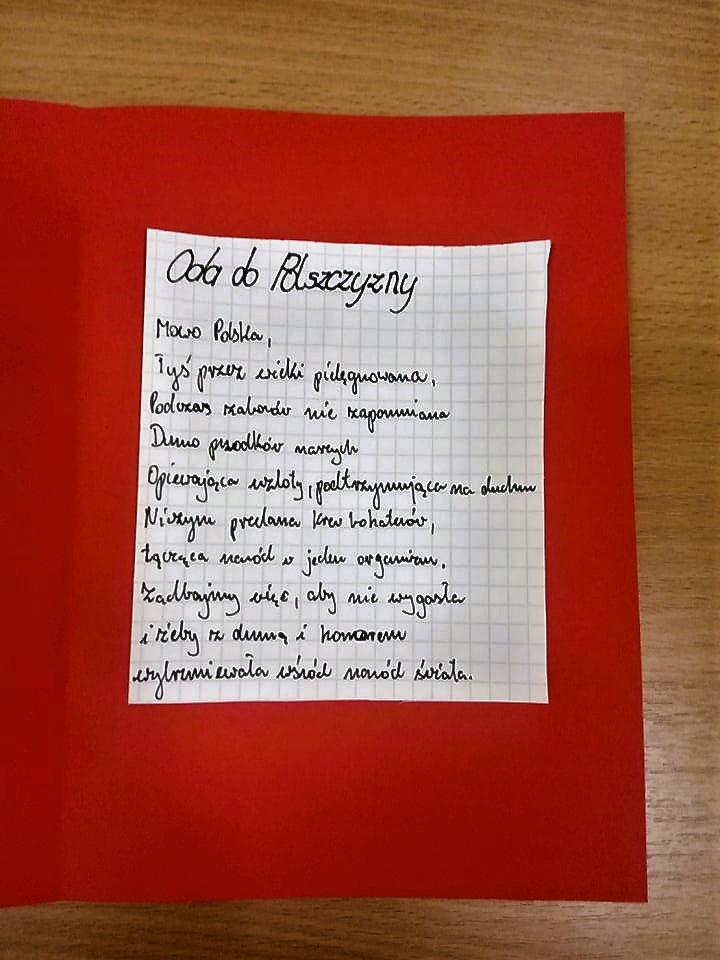 Oda do Polszczyzny
Mowo Polska,
Tyś przez wieki pielęgnowana,
Podczas zaborów nie zapomniana
Dumo przodków naszych
Opiewająca wzloty, podtrzymująca na duchu
Niczym przelana krew bohaterów,
Łącząca naród w jeden organizm.
Zadbajmy więc, aby nie wygasła
i żeby z dumą i honorem
wybrzmiewała wśród naród świata.